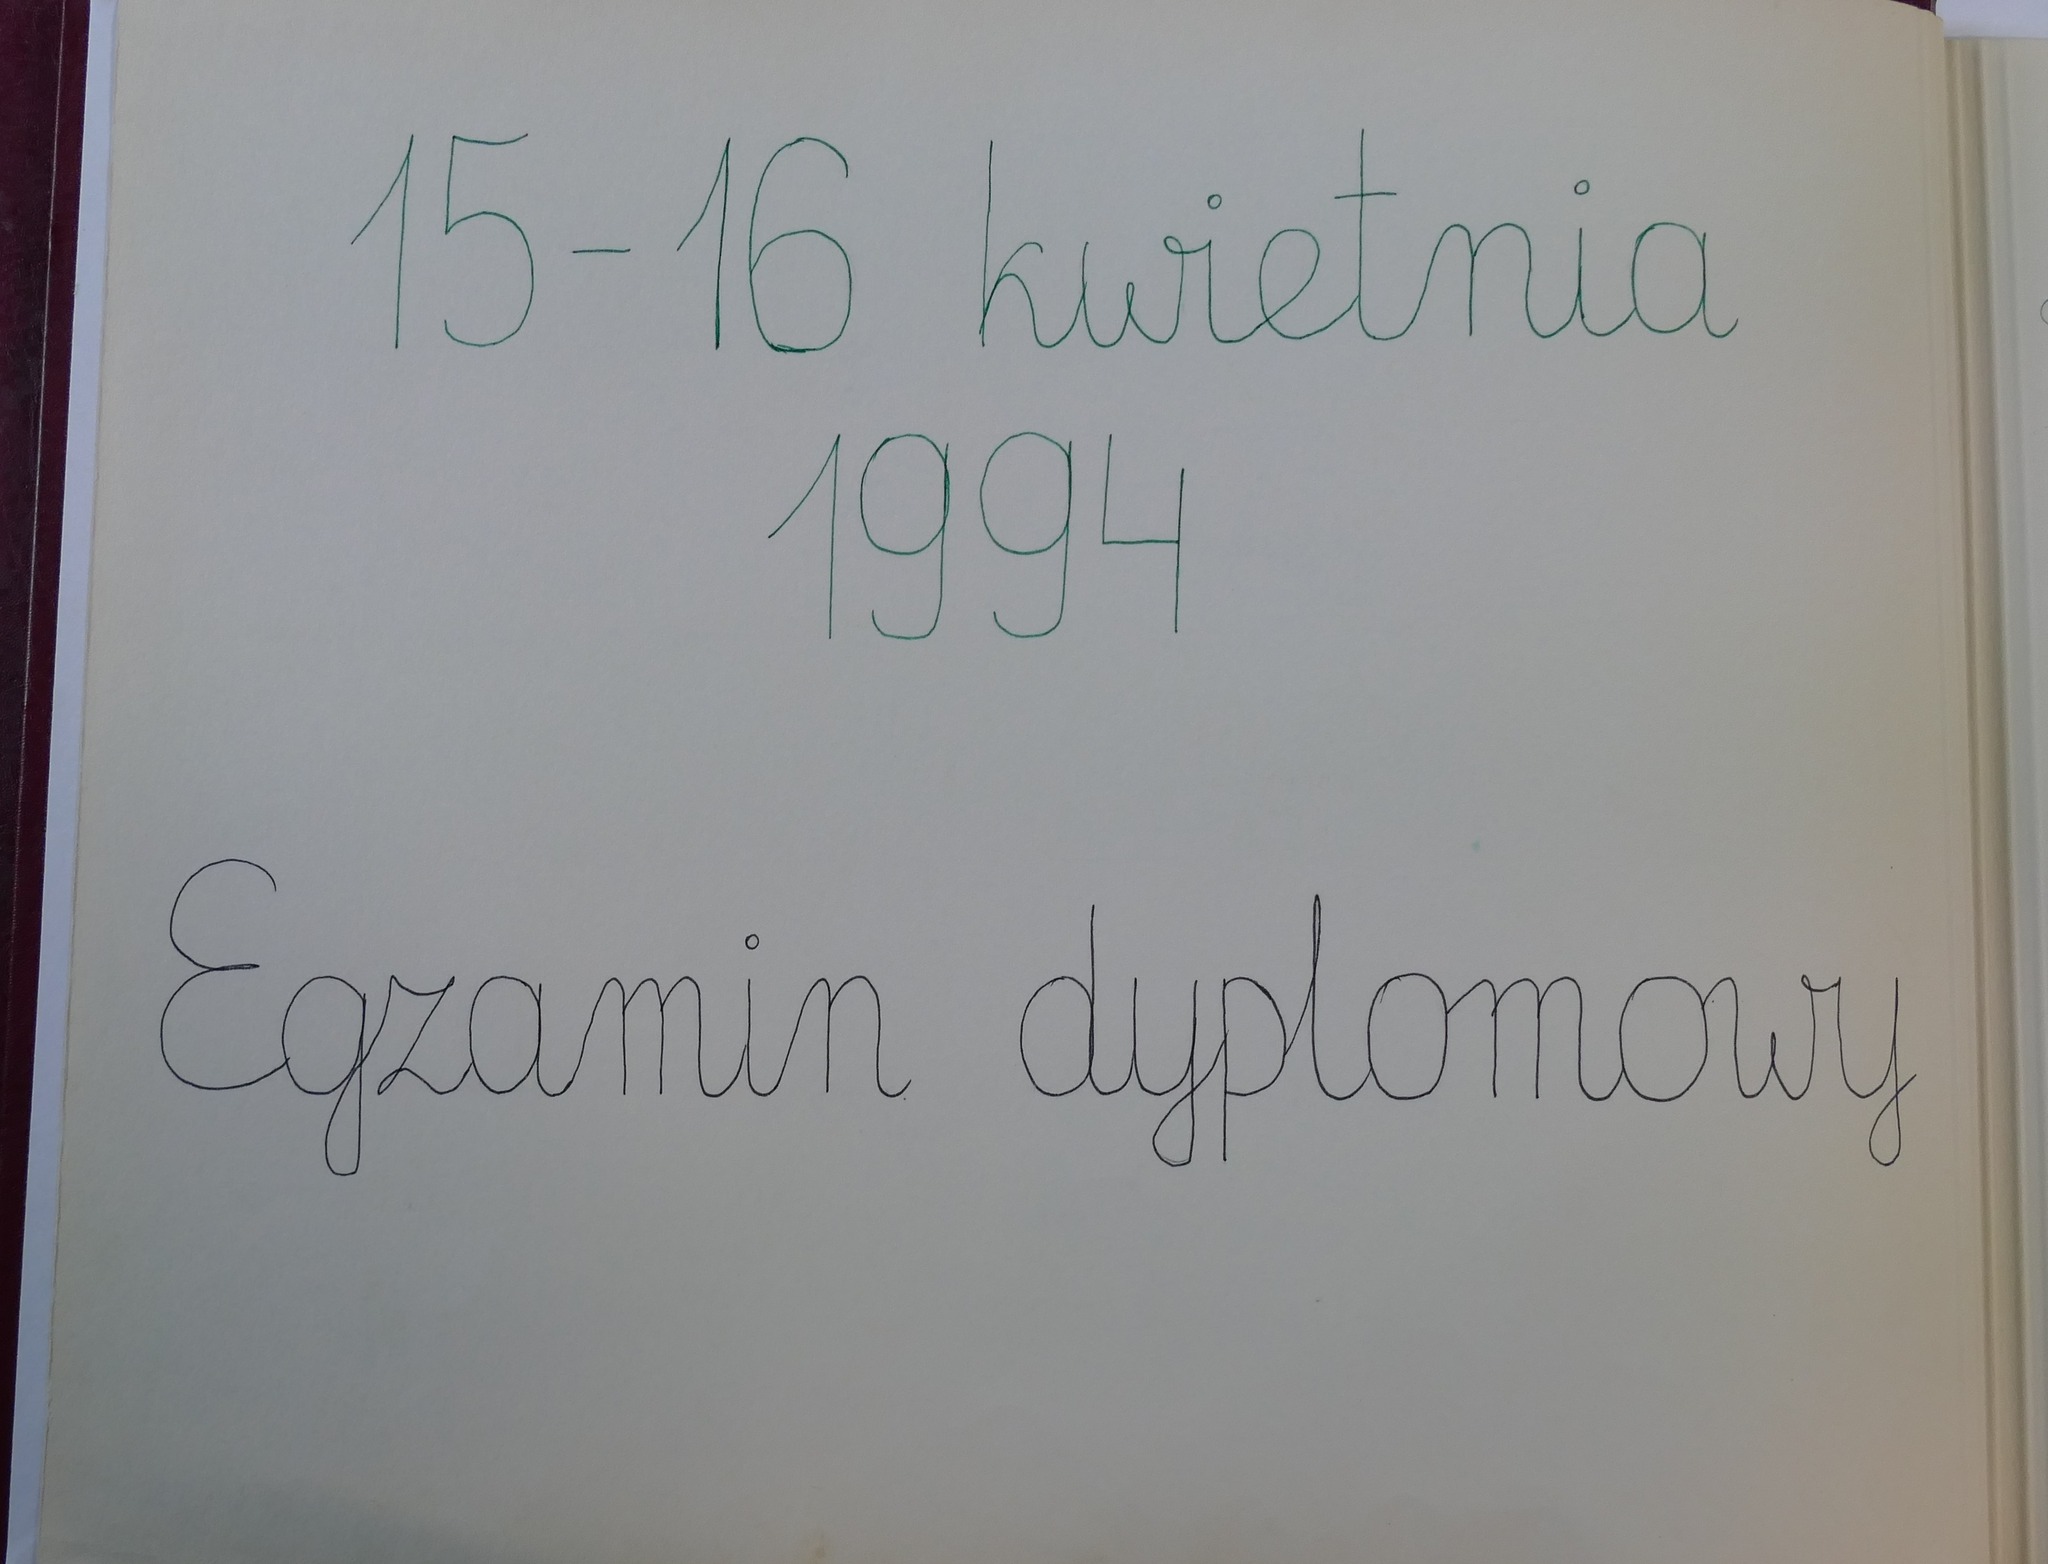 15-16 kwietnia
1994
Egzamin dyplomowy